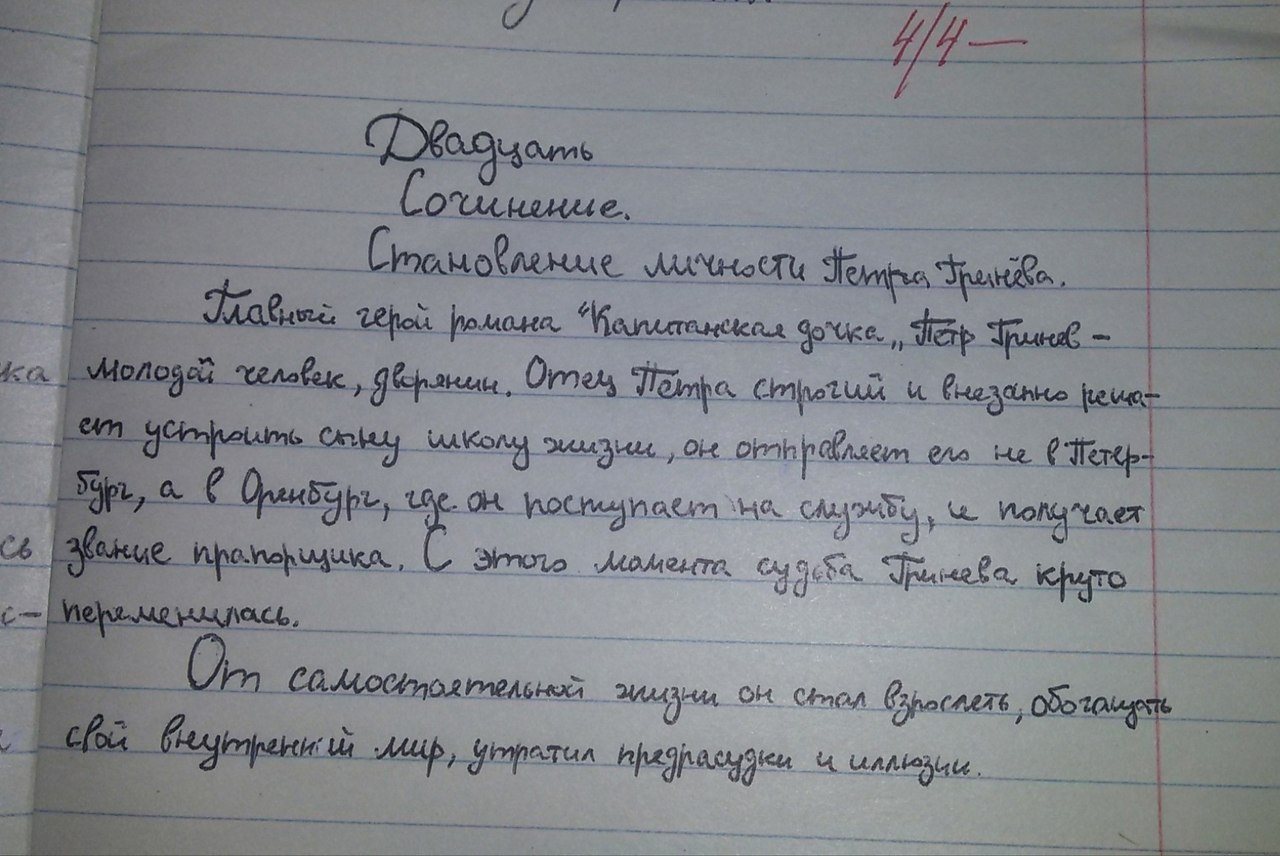 4/4—
Двадцать
Сочинение.
Становление личности Петра Гринёва.
Главный герой романа "Капитанская дочка„ Пётр Гринев -
ка молодой человек, дворянин. Отец Петра строгий и внезапно реша-
ет устроить сыну школу жизни, он отправляет его не в Петер-
бург, а в Оренбург, где он поступает на службу, и получает
сь звание прапорщика. С этого момента судьба Гринева круто
с- переменилась.
От самостоятельной жизни он стал взрослеть, обогащать
свой внутренний мир, утратил предрасудки и иллюзии.